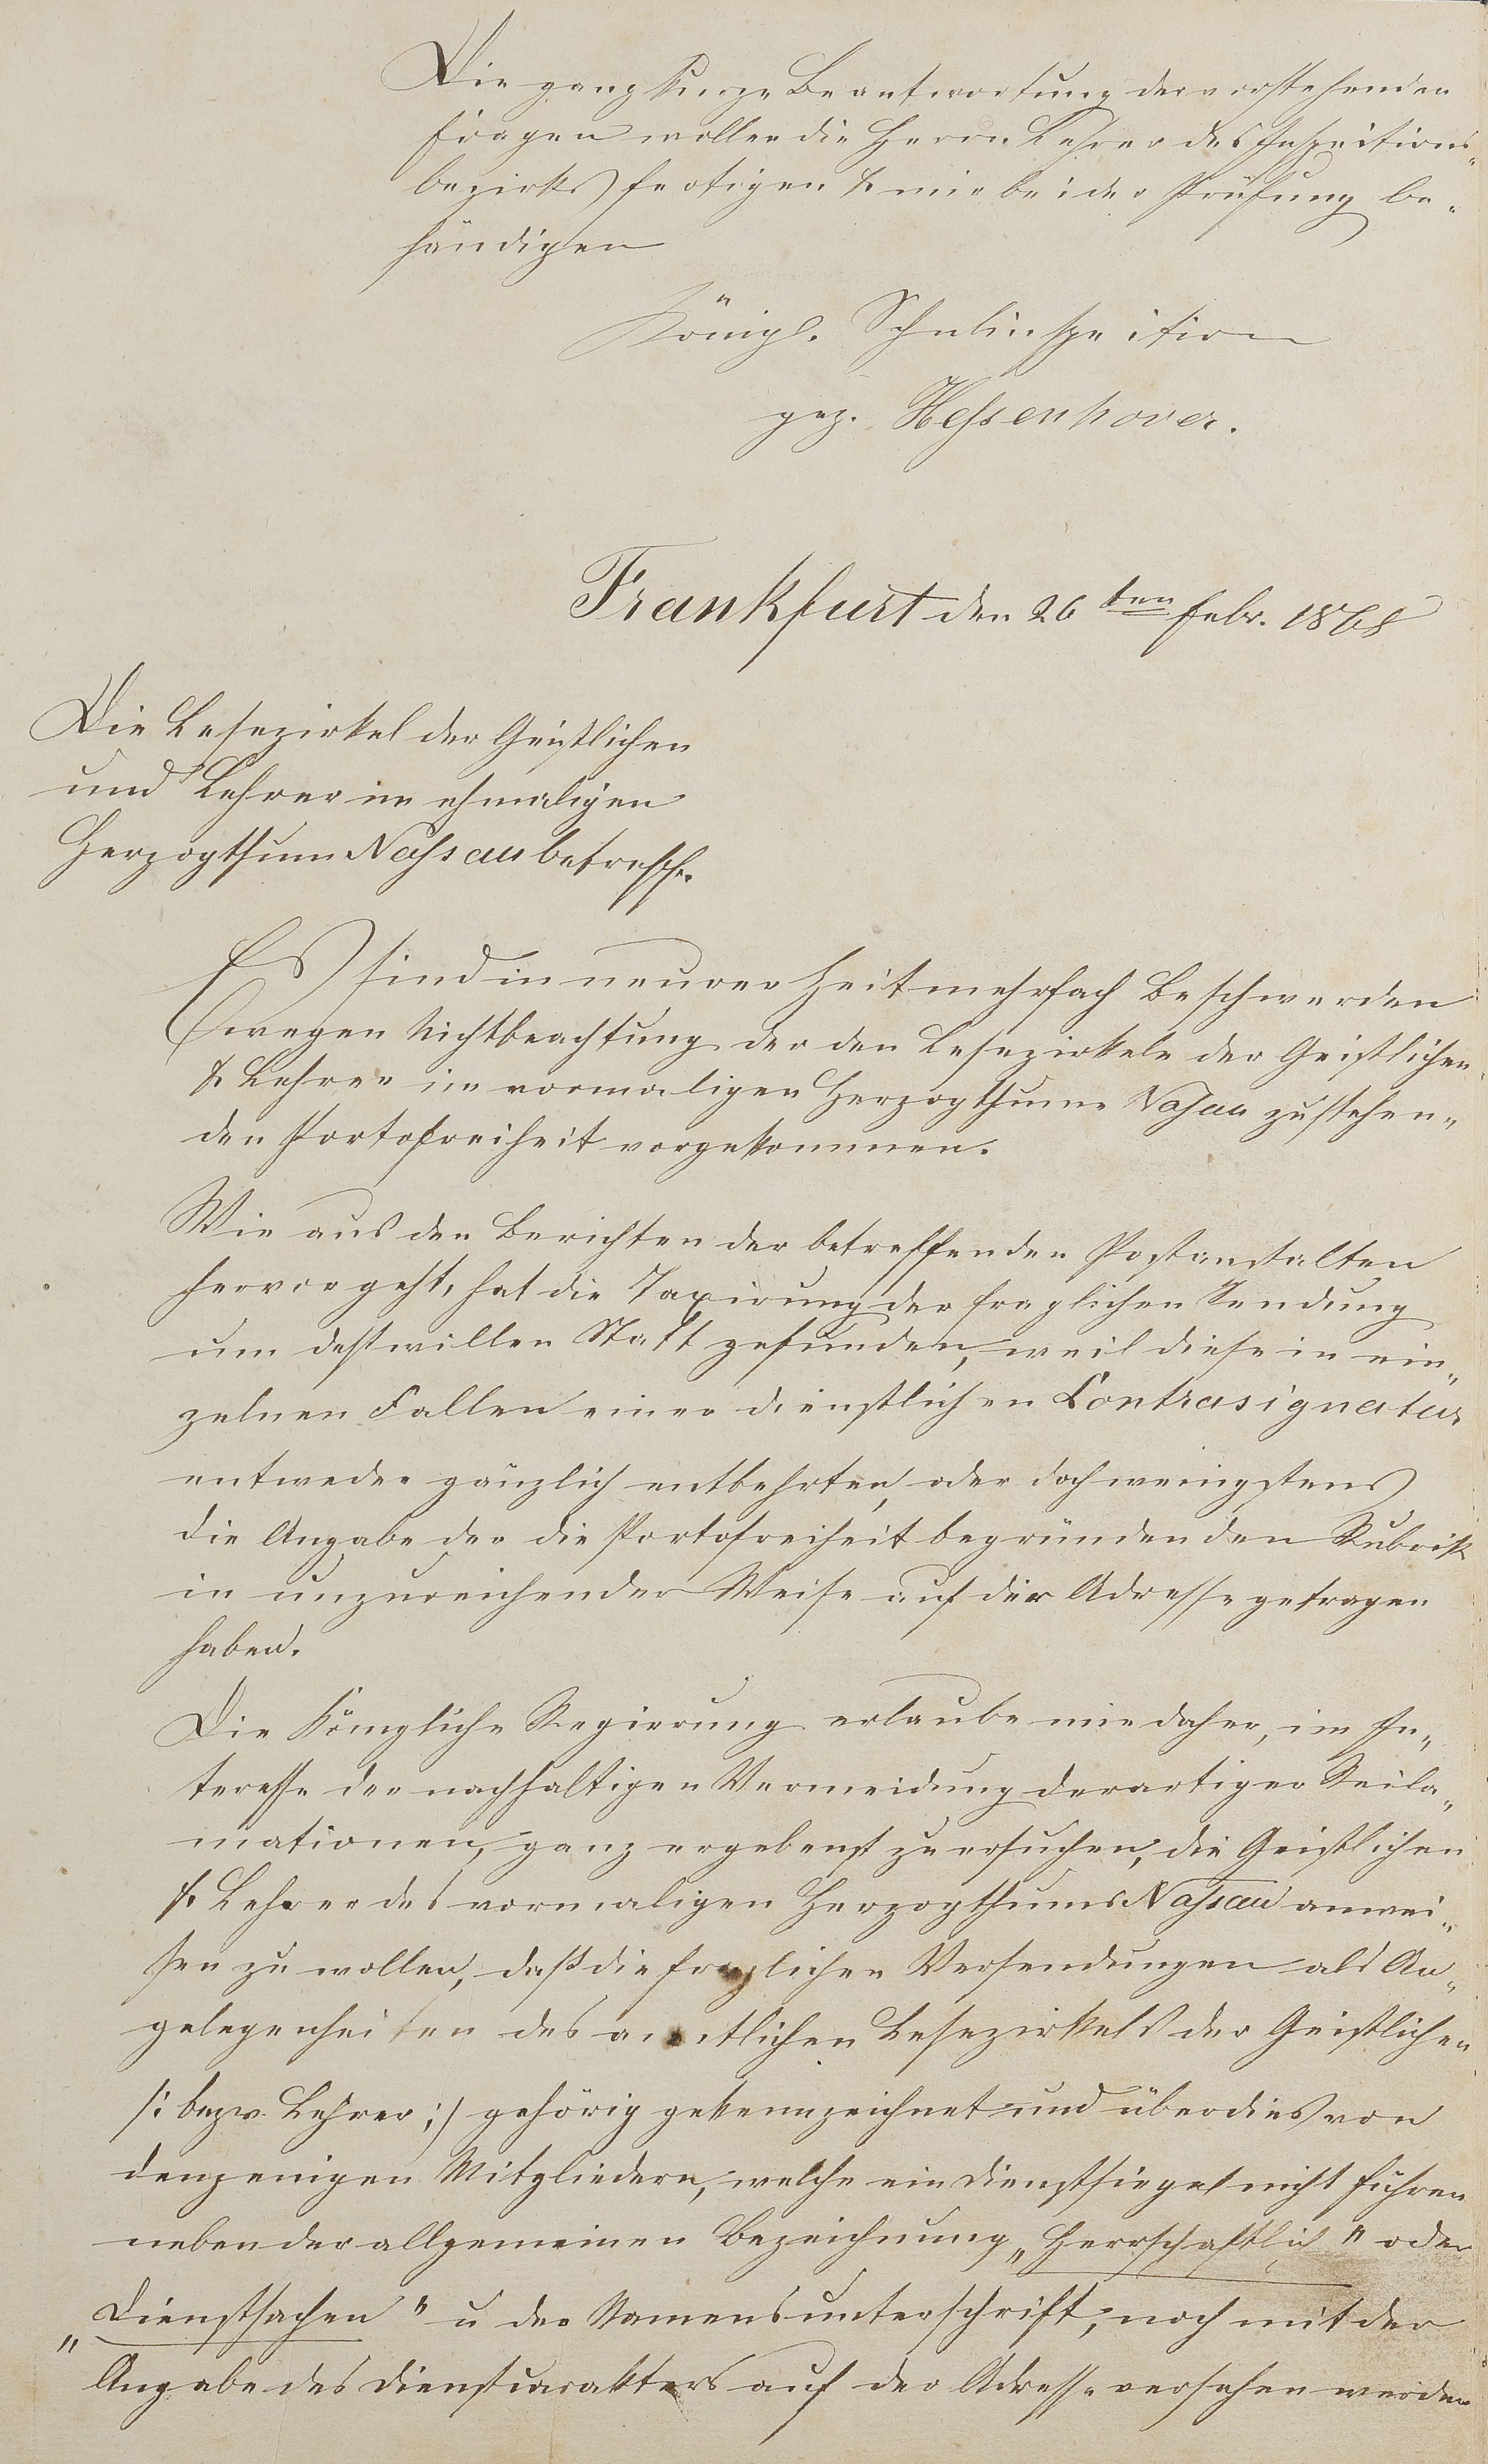 Die ganz kurze Beantwortung der vorstehenden
Fragen wollen die Herrn Lehrer des Inspections-
bezirks fertigen & mir bei der Prüfung be-
händigen
Königl. Schulinspection
gez. Hessenhover.
Frankfurt den 26ten Febr. 1868
Die Lesezirkel der Geistlichen
und Lehrer im ehmaligen
Herzogthum Nassau betreffh.
Es sind in neurer Zeit mehrfach Beschwerden
wegen Nichtbeachtung der den Lesezirkeln der Geistlichen
& Lehrer im vormaligen Herzogthume Nassau zustehen-
den Portofreiheit vorgekommen.
Wie aus den Berichten der betreffenden Postanstalten
hervorgeht, hat die Taxirung der fraglichen Sendung
um destwillen Statt gefunden, weil diese in ein-
zelnen Fallen einer dienstlichen Contrasignatur
entweder gänzlich entbehrten, oder doch wenigstens
die Angabe der die Portofreiheit begründenden Rubrik
in unzureichender Weise auf der Adresse getragen
haben.
Die Königliche Regierung erlaube mir daher, im In-
teresse der nachhaltigen Vermeidung derartiger Recla-
mationen, ganz ergebenst zu ersuchen, die Geistlichen
& Lehrer des vormaligen Herzogthums Nassau anwei-
sen zu wollen, daß die fraglichen Versendungen als An-
gelegenheiten des amtlichen Lesezirkels der Geistlichen
/: bezw. Lehrer :/ gehörig gekennzeichnet und überdies von
denjenigen Mitgliedern, welche ein Dienstsiegel nicht führen
neben der allgemeinen Bezeichnung „Herrschaftlich" oder
„Dienstsachen" u der Namensunterschrift, noch mit der
Angabe des Dienstcarakters auf der Adresse versehen werden